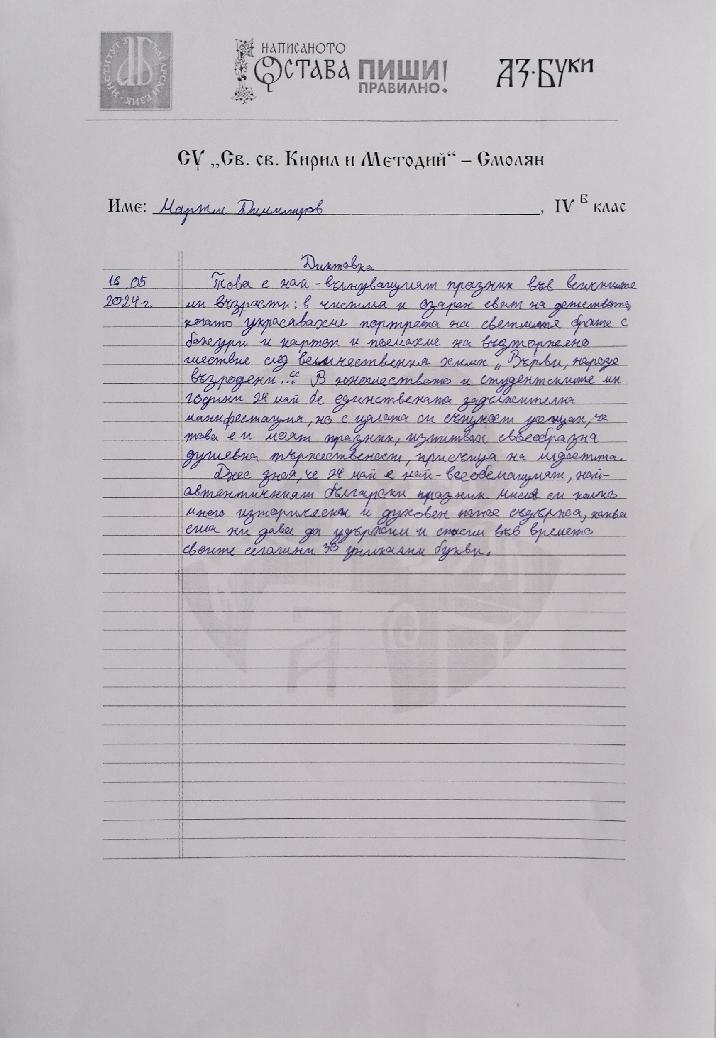 ИНСТИТУТ БЪЛГАРСКИ ЕЗИК
НАПИСАНОТО
ОСТАВА ПИШИ
ПРАВИЛНО!
АЗ·БУКИ
СУ „Св. св. Кирил и Методий“ – Смолян
Име: Мартин Димитров, IV Б клас
Диктовка
16.05 Това е най-вълнуващият празник във всичките
2024 г. ми възрасти: в чистия и озарен свят на детството,
когато украсявахме портрета на светлите братя с
божури и картон и поемахме на възторжено
шествие след величествения химн „Върви, народе
възродени...“ В юношеството и студентските ми
години 24 май бе единствената задължителна
манифестация, но с цялата си същност усещах, че
това е и моят празник, изпитвах своеобразна
душевна тържественост, присъща на младостта.
Днес зная, че 24 май е най-всеобемащият, най-
автентичният български празник. Мисля си колко
много исторически и духовен патос съдържа, каква
сила ни дава да удържим и спасим във времето
своите сегашни 30 уникални букви.